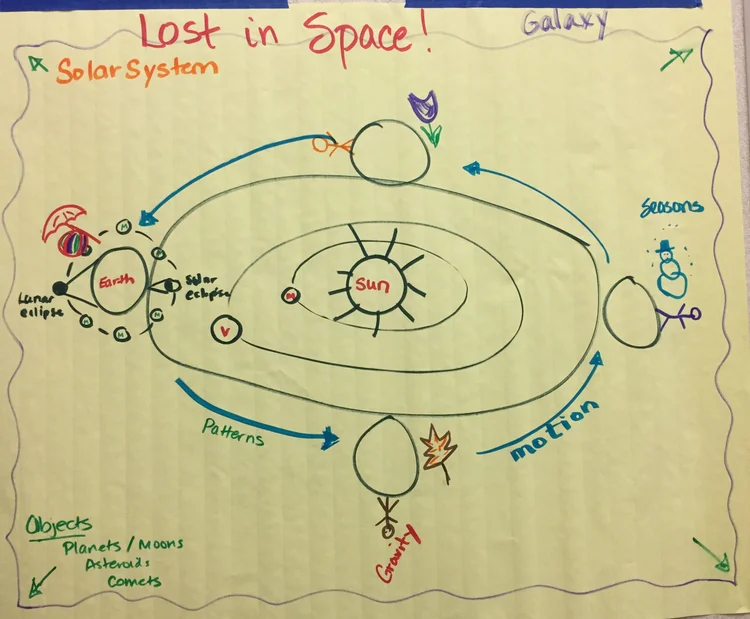 Lost in Space!
Galaxy
Solar System
Seasons
M
M
M
M
M
M
Earth
Solar
eclipse
Lunar
eclipse
Sun
M
V
Patterns
motion
Gravity
Objects
Planets / Moons
Asteroids
Comets